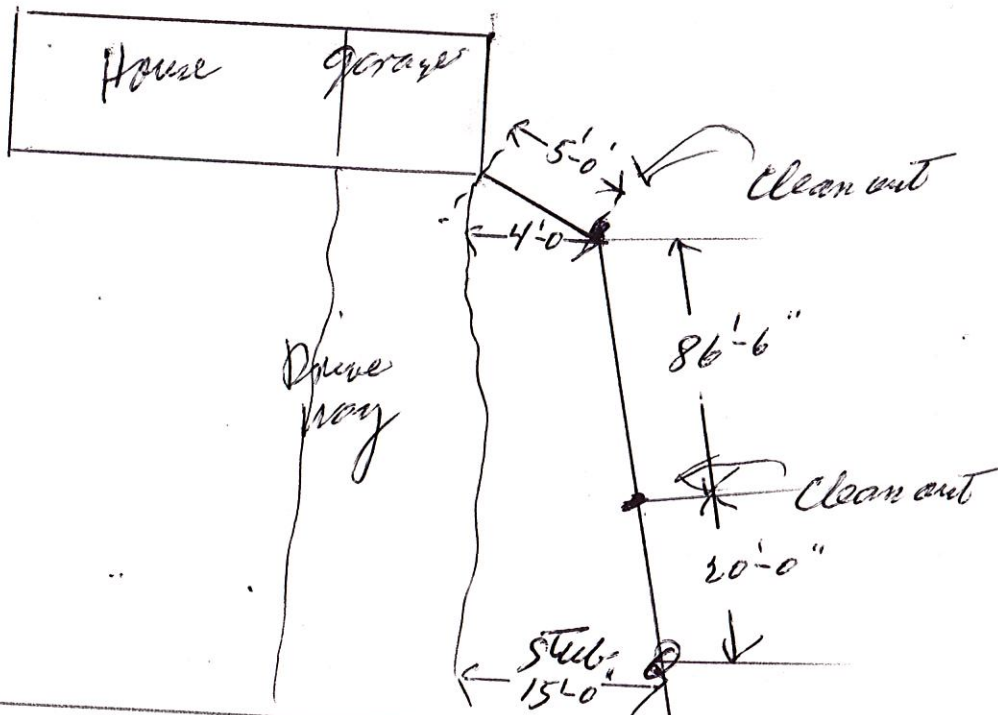 House garage
5'-0"
Clean out
4'-0
86'-6"
Drive
way
Clean out
20'-0"
Stub
15'-0"